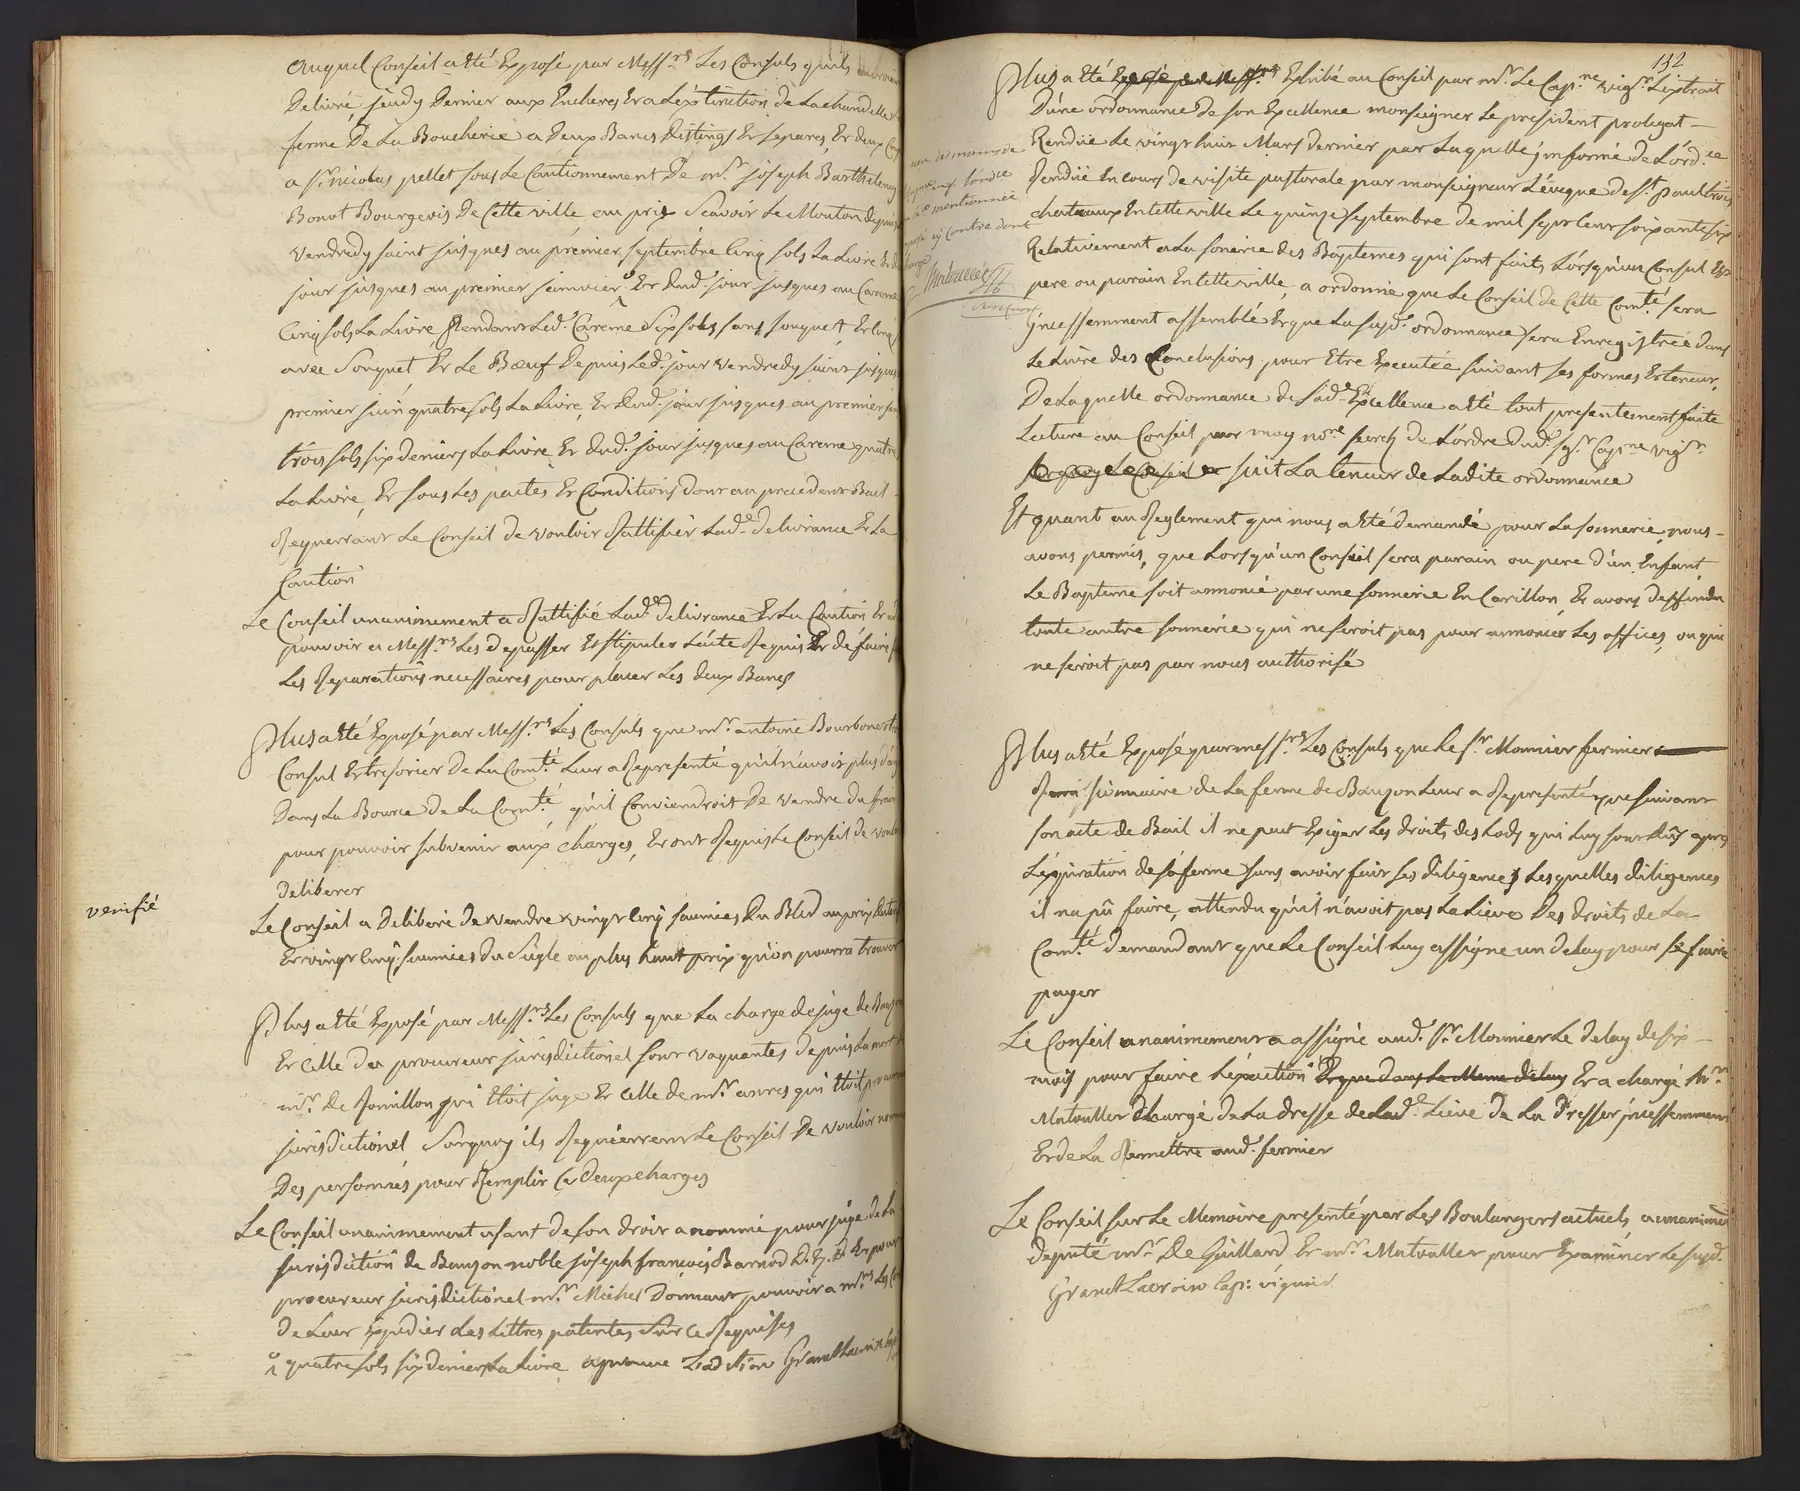 Auquel Conseil a été Exposé par Mess.rs Les Consuls quils
Delivré jeudy Dernier aux Encheres Et a L'extinction de La chandelle
ferme De La Boucherie a Deux Bancs Distings Et separes, Et deux
a Sr nicolas pellet sous Le Cautionnement De Mr joseph Barthelemy
Bonot Bourgeois De Cette ville au prix Scavoir Le Mouton depuis
Vendredy saint jusques au premier septembre Cinq sols La Livre Et
jour jusques au premier janvier ° Et dud. jour jusques au Careme
Cinq sols La Livre, Pendant Led. Careme Six sols sans souquet, Et Cinq
avec Souquet Et Le Bœuf Depuis Led. jour vendredy saint jusques
premier juin quatre sols La Livre, Et dud. jour jusques au premier
trois sols six deniers La Livre Et dud. jour jusques au Careme quatre
La Livre, Et sous Les pactes Et Conditions dont au precedent Bail
Requerrant Le Conseil de vouloir Rattifier Lad.e delivrance Et La
Caution
Le Conseil unanimement a Rattifié Lad.e delivrance Et La Caution Et
pouvoir a Mess.rs Les d'epasser Et stipuler L'acte Requis Et de faire
Les Reparations necessaires pour placer Les deux Bancs
Plus a été Exposé par Mess.rs Les Consuls que mr antoine Bourbon
Consul Et tresorier De La Com.té Leur a Representé qu'il n'avoit plus d'
Dans La Bource De La Com.té, qu'il Conviendroit De vendre du
pour pouvoir subvenir aux charges, Et ont Requis Le Conseil de
Deliberer
verifié
Le Conseil a Deliberé de vendre vingt Cinq saumées Du Bled au prix
Et vingt Cinq saumées Du Sigle au plus haut prix qu'on pourra trouver
Plus a été Exposé par Mess.rs Les Consuls que La charge de juge de
Et Celle du procureur jurisdictionel sont vaquantes depuis La mort
mr. De Romillon qui Etoit juge Et Celle de mr. qui Etoit
jurisdictionel Surquoy ils Requierrent Le Conseil De vouloir
Des personnes pour Remplir Ces Deux charges
Le Conseil unanimement usant de son droit a nommé pour juge de La
jurisdiction de Bauzon noble joseph francois Barnod Et pour
procureur jurisdictionel mr. Michel Donnant pouvoir a mrs Les
de Leur Expedier Les Lettres patentes Sur Ce Requises
° quatre sols six deniers La Livre aprouvé L'adition Grand Lacroix
132
Plus a été Exposé par Mess.rs Exhibé au Conseil par mr. Le Cap.ne vig.r L'extrait
D'une ordonnance De son Excellence monseigneur Le president prolegat
Rendüe Le vingt huit Mars dernier par Laquelle, informé de L'ord.ce
Rendüe En cours de visite pastorale par monseigneur L'eveque de St. paul trois
chateaux En cette ville Le quinze septembre de mil sept cens soixante six
Relativement a La sonerie des Baptemes qui sont faits Lorsqu'un Consul Est
pere ou parain En cette ville, a ordonné que Le Conseil de Cette Com.té sera
incessemment assemblé Et que La susd. ordonnance sera Enregistrée dans
Le Livre des Conclusions pour Etre Executée suivant ses formes Et teneur,
De Laquelle ordonnance de Sad.e Excellence a été tout presentement faite
Lecture au Conseil par moy no.re secre. de L'ordre dud. sg.r Cap.ne vig.r
suit La teneur de Ladite ordonnance
Et quant au Reglement qui nous a été demandé pour La sonnerie nous
avons permis, que Lorsqu'un Conseil sera parain ou pere d'un Enfant,
Le Bapteme soit annoncé par une sonnerie En Carillon, Et avons deffendu
toute autre sonnerie qui ne seroit pas pour annoncer Les offices, ou qui
ne seroit pas par nous authorisé
mentionnée
cy contre dont
Plus a été Exposé par mess.rs Les Consuls que Le Sr. Monnier fermier
de La ferme de Bauzon Leur a Representé que suivant
son acte de Bail il ne peut Exiger Les droits des Lods qui Luy sont dûs apres
L'expiration de sa ferme sans avoir fait ses diligences Lesquelles diligences
il na pû faire, attendu qu'il n'avoit pas La Lieve Des droits de La
Com.té demandant que Le Conseil Luy assigne un delay pour se faire
payer
Le Conseil unanimement a assigné aud. Sr. Monnier Le delay de six
mois pour faire L'exaction Et que dans Le Meme delay Et a chargé
chargé De La dresse de Lad.e Lieve De La Dresser incessemment
Et de La Remettre aud. fermier
Le Conseil sur Le Memoire presenté par Les Boulangers actuels, a unanimem.t
deputé mr. De Guillard Et mr. pour Examiner Le susd.
Grand Lacroix Cap. viguier